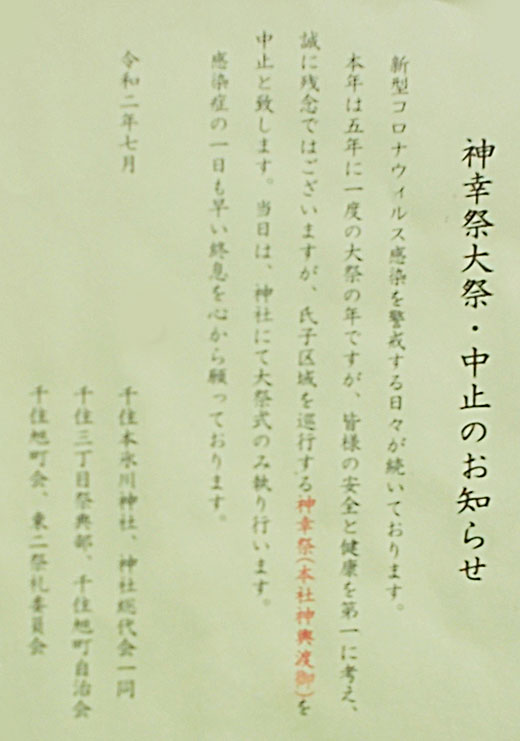 神幸祭大祭・中止のお知らせ
新型コロナウィルス感染を警戒する日々が続いております。
本年は五年に一度の大祭の年ですが、皆様の安全と健康を第一に考え、
誠に残念ではございますが、氏子区域を巡行する神幸祭(本社神輿渡御)を
中止と致します。当日は、神社にて大祭式のみ執り行います。
感染症の一日も早い終息を心から願っております。
令和二年七月
千住本氷川神社、神社総代会一同
千住三丁目祭典部、千住旭町自治会
千住旭町会、東二祭礼委員会